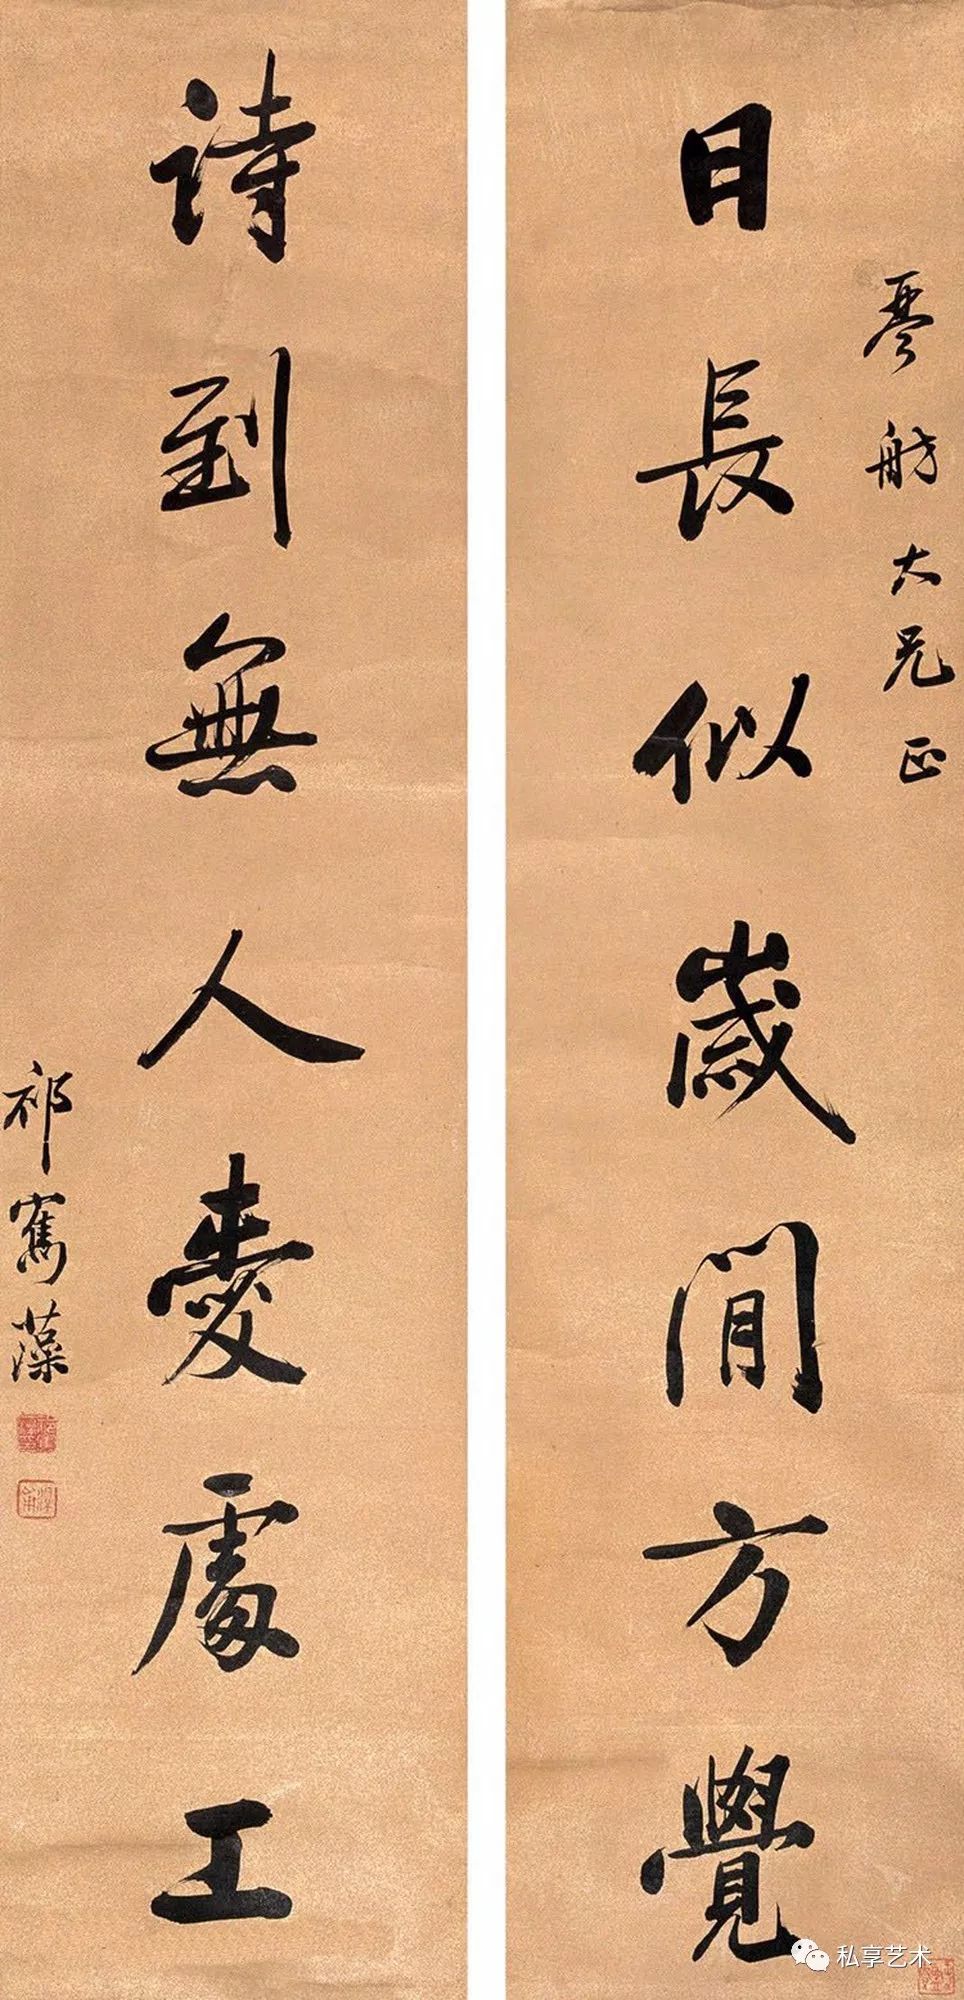 琴舫大兄正
日長似歲閒方覺
詩到無人愛處工
祁寯藻
私享艺术